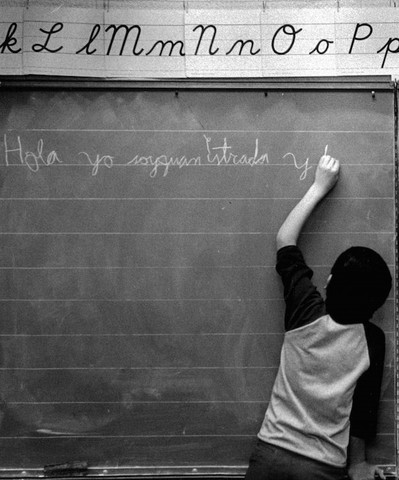 k L l M m N n O o P p
Hola yo soyquan Estrada y